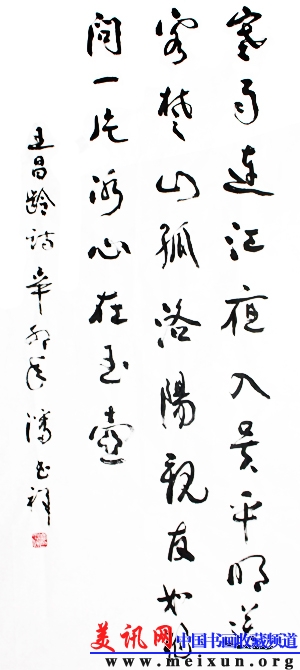 寒雨連江夜入吳平明送
客楚山孤洛陽親友如相
問一片冰心在玉壺
王昌齡詩辛卯 潘
美讯网 中国书画收藏频道
www.meixun.org